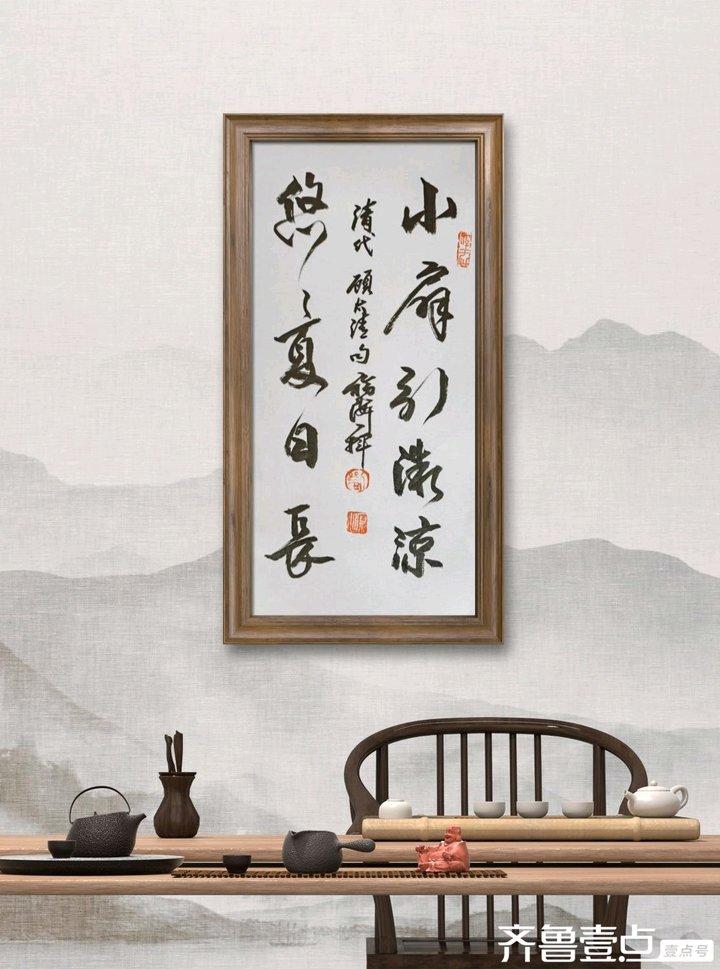 小扇引微涼
悠々夏日長
清代 顾太清句
齐鲁壹点
壹点号